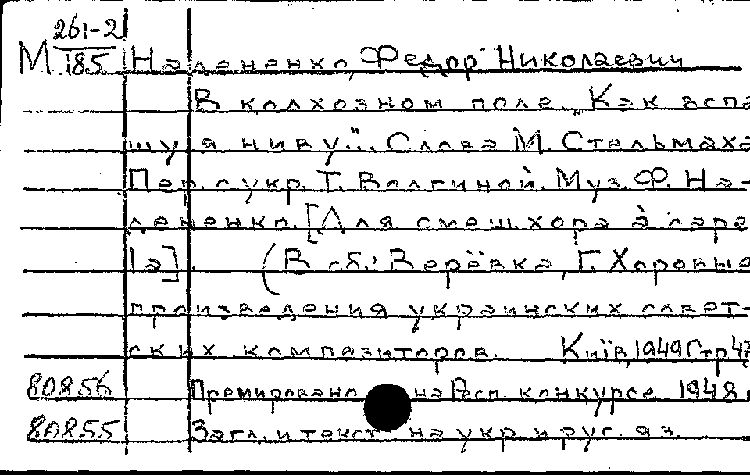 261-2
М 185 Надененко, Федор Николаевич
В колхозном поле. „Как вспа
шу я ниву". Слова М. Стельмаха
Пер. с укр. Т. Волгиной. Муз. Ф. На-
дененко. [Для смеш. хора a capе
la]. (В сб.: Верёвка, Г. Хоровые
произведения украинских совет-
ских композиторов. Київ, 1949 Стр 47
80856 Премировано на Респ. конкурсе 1948
80855 Загл. и текст на укр. и рус. яз.